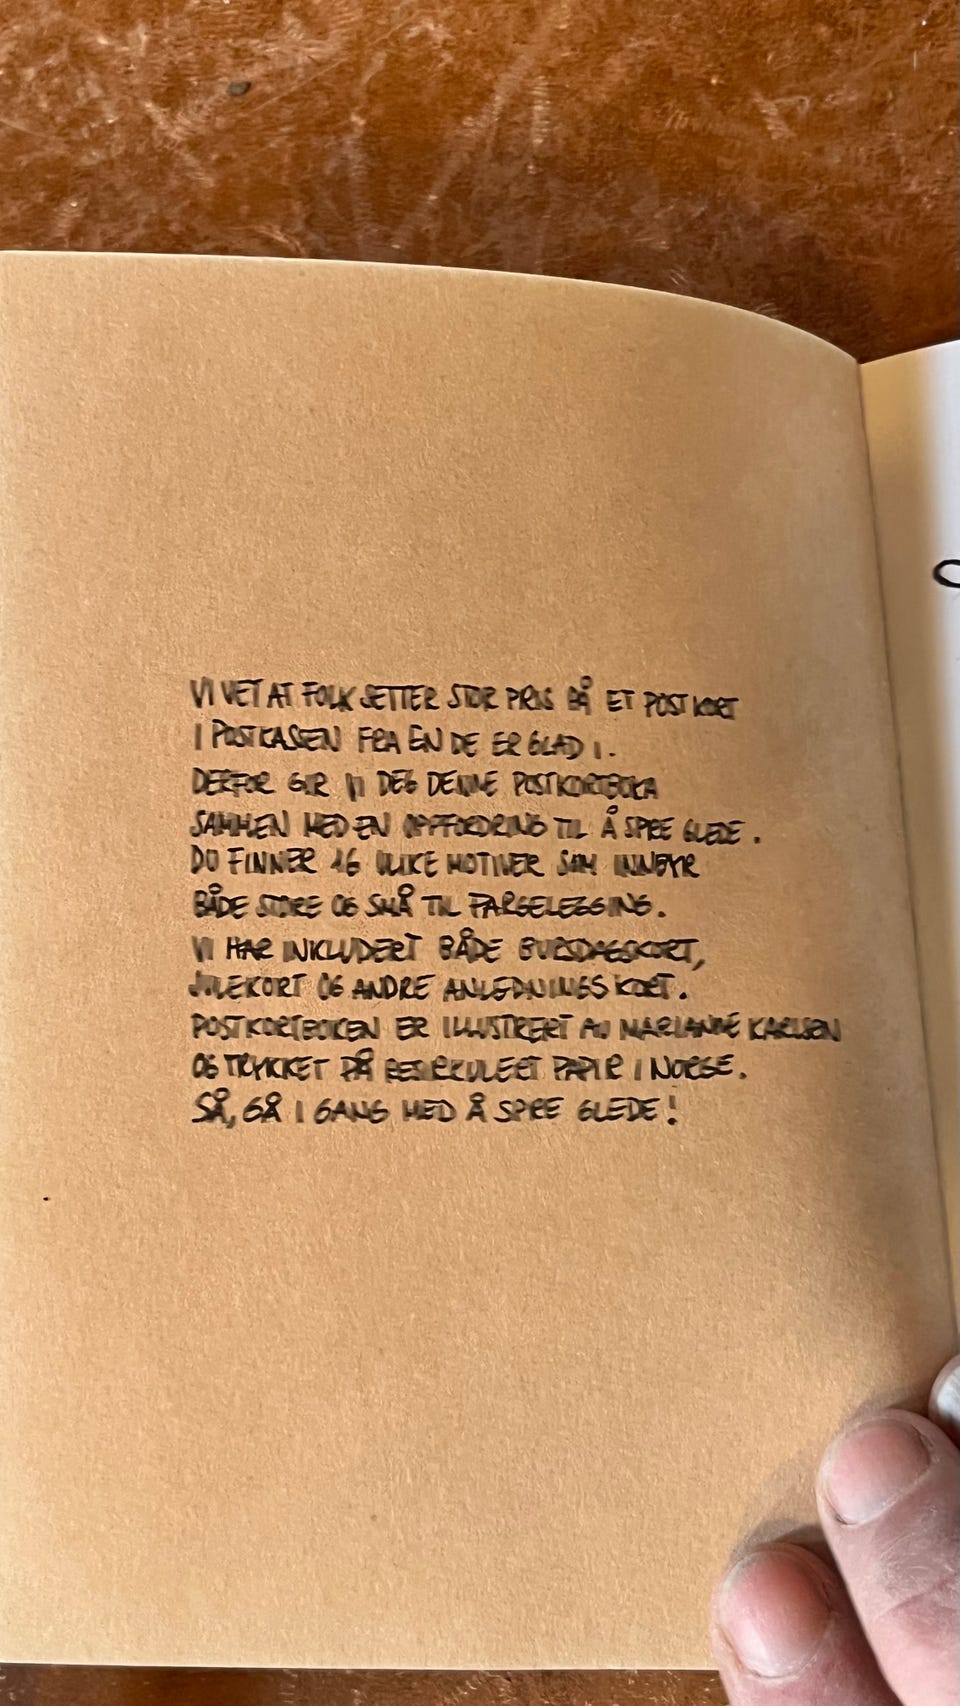 VI VET AT FOLK SETTER STOR PRIS PÅ ET POSTKORT
I POSTKASSEN FRA EN DE ER GLAD I.
DERFOR GIR VI DEG DENNE POSTKORTBOKA
SAMMEN MED EN OPPFORDRING TIL Å SPRE GLEDE.
DU FINNER 16 ULIKE MOTIVER SOM INNBYR
BÅDE STORE OG SMÅ TIL FARGELEGGING.
VI HAR INKLUDERT BÅDE BURSDAGSKORT,
JULEKORT OG ANDRE ANLEDNINGSKORT.
POSTKORTBOKEN ER ILLUSTRERT AV MARIANNE KARLSEN
OG TRYKKET PÅ RESIRKULERT PAPIR I NORGE.
SÅ, GÅ I GANG MED Å SPRE GLEDE!